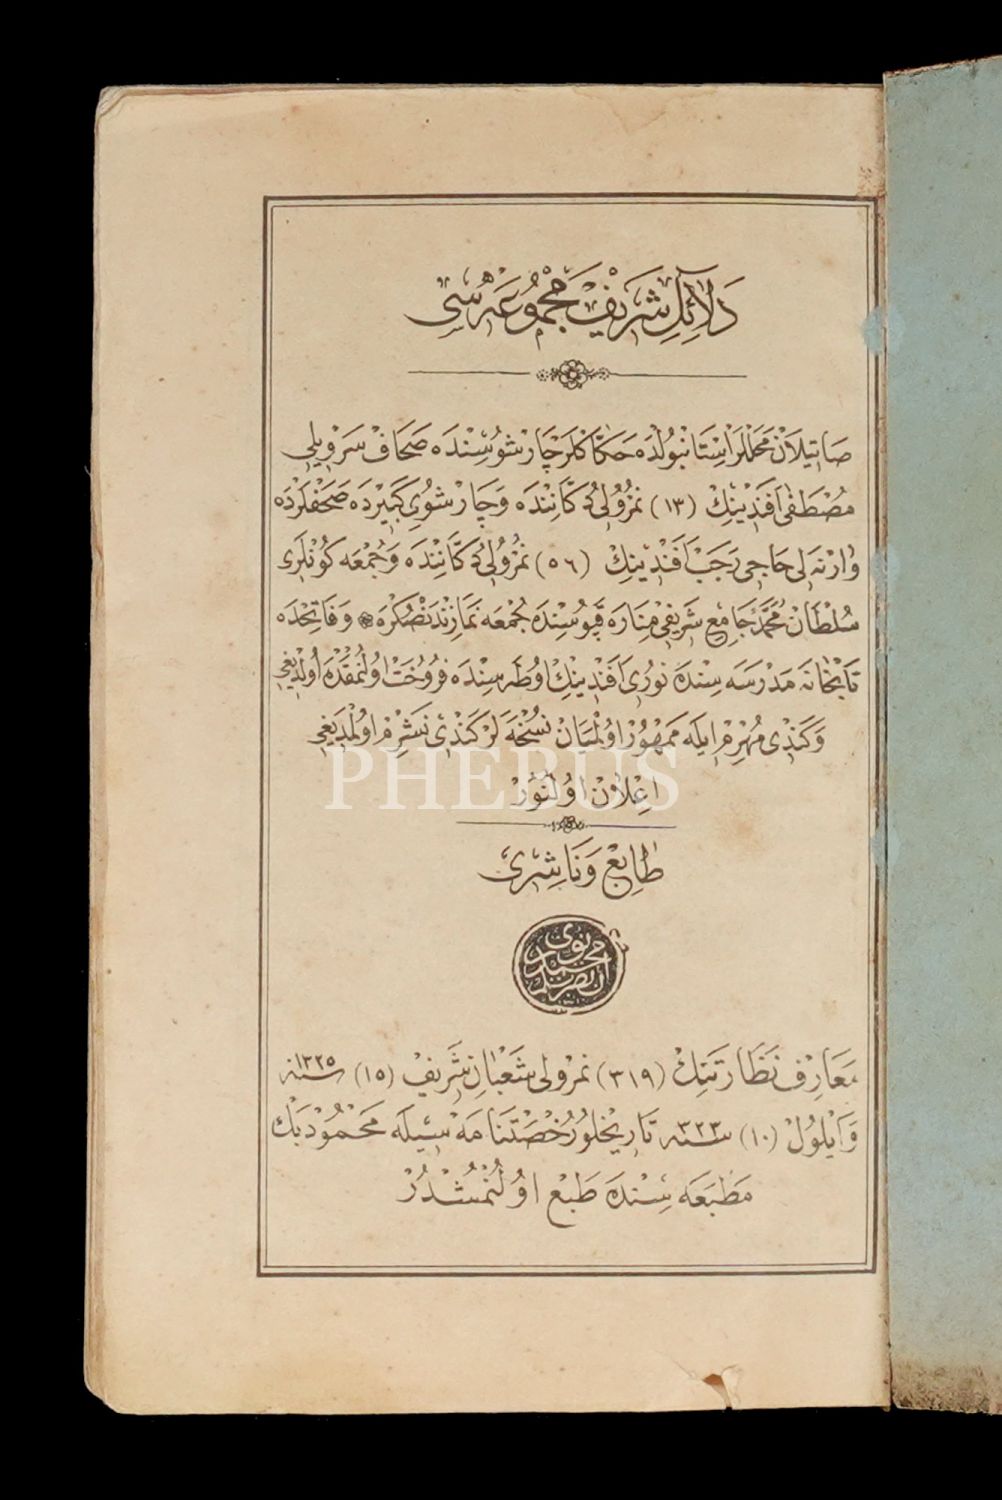 دَلَآئِلِ شَرِيفْ مَجْمُوعَهْسِى
صَاتِيلَانْ مَحَلْلَرْ اِسْتَانْبُولْدَه حَكَّاكْلَرْ چَارْشُوسِنْدَه صَحَافْ سَرَوِيلِى
مُصْطَفٰى اَفَنْدِينِكْ (١٣) نُمْرُولِى دُكَّانِنْدَه وَچَارْشُوىِ كَبِيرْدَه صَحَفْلَرْدَه
وَارْنَه لِى حَاجِى رَجَبْ اَفَنْدِينِكْ (٥٦) نُمْرُولِى دُكَّانِنْدَه وَجُمْعَه كُونْلَرِى
سُلْطَانْ مُحَمَّدْ جَامِعِ شَرِيفِى مِنَارَه قَپُوسِنْدَه جُمْعَه نَمَازِنْدَنْصُكْرَه ❀ وَفَاتِحْدَه
تَابْخَانَه مَدْرَسَه سِنْدَه نُورِى اَفَنْدِينِكْ اوُطَه سِنْدَه فُرُوخَتْ اوُلُنْمَقْدَه اوُلْدِيغِى
وَكَنْدِى مُهْرِمْ اِيلَه مَمْهُورْ اوُلْمَيَانْ نُسْخَه لَرْ كَنْدِى نَشْرِمْ اوُلْمَدِيغِى
اِعْلَانْ اوُلُنُورْ
PHEBUS
طَابِعْ وَنَاشِرِى
مَعَارِفْ نَظَارَتِنِكْ (٣١٩) نُمْرُولِى شَعْبَانِ شَرِيفْ (١٥) سنه ١٣٢٥
وَاَيْلُولْ (١٠) سنه ٣٢٣ تَارِيخْلُو رُخْصَتْنَامَه سِيلَه مَحْمُودْ بَكْ
مَطْبَعَه سِنْدَه طَبْعْ اوُلُنْمُشْدُرْ